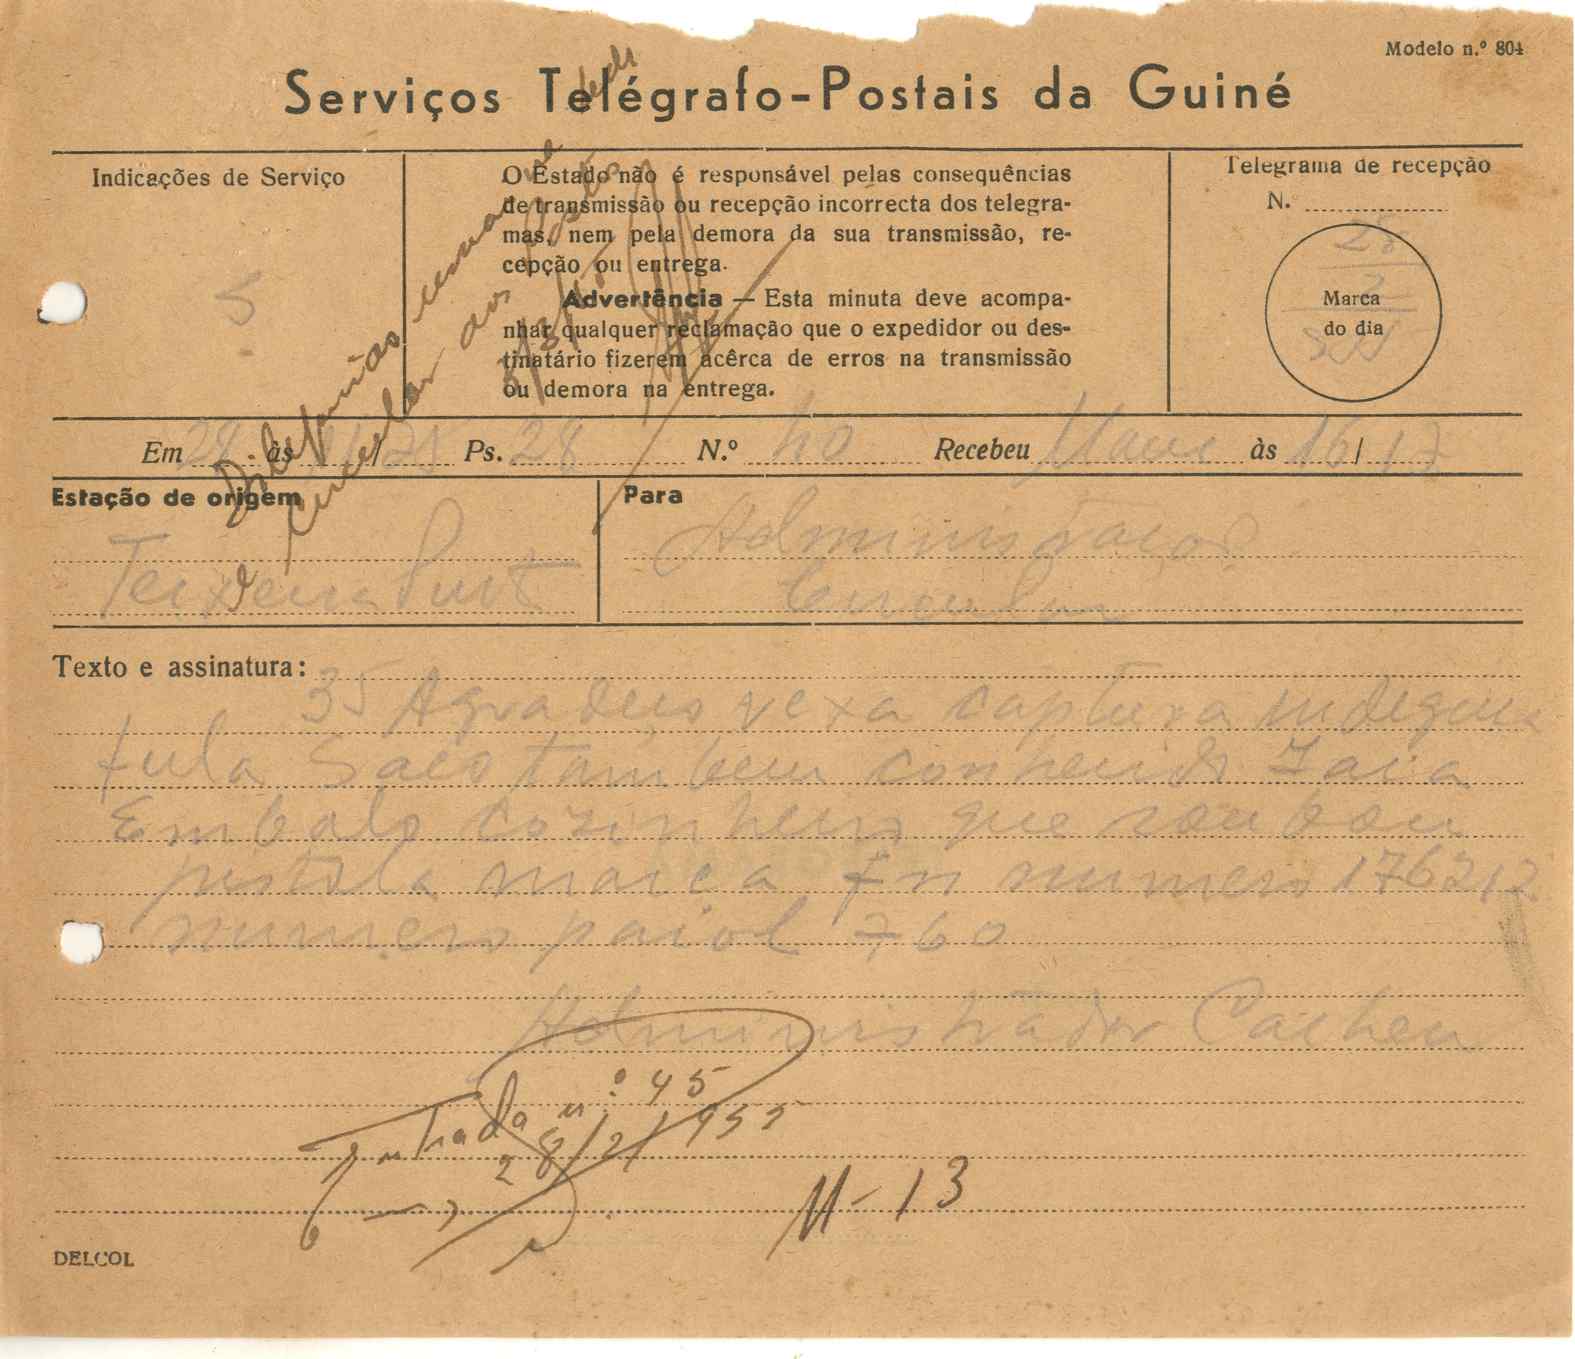 Modelo n.º 804
Serviços Telégrafo-Postais da Guiné
Indicações de Serviço
S
O Estado não é responsável pelas consequências
de transmissão ou recepção incorrecta dos telegra-
mas, nem pela demora da sua transmissão, re-
cepção ou entrega.
Advertência — Esta minuta deve acompa-
nhar qualquer reclamação que o expedidor ou des-
tinatário fizerem acêrca de erros na transmissão
ou demora na entrega.
Telegrama de recepção
N.
28
2
Marca
do dia
Em 28 às / Ps. 28 N.º 40 Recebeu às 16/17
Estação de origem
Teixeira Pinto
Para
Administrador
Circular
Texto e assinatura:
35 Agradeço vexa captura indigena
fula Saco tambem conhecido Iaia
Embalo cozinheiro que roubou
pistola marca fn numero 176212
numero paiol 760
Administrador Cacheu
Entrada n.º 45
28/2/955
M-13
DELCOL